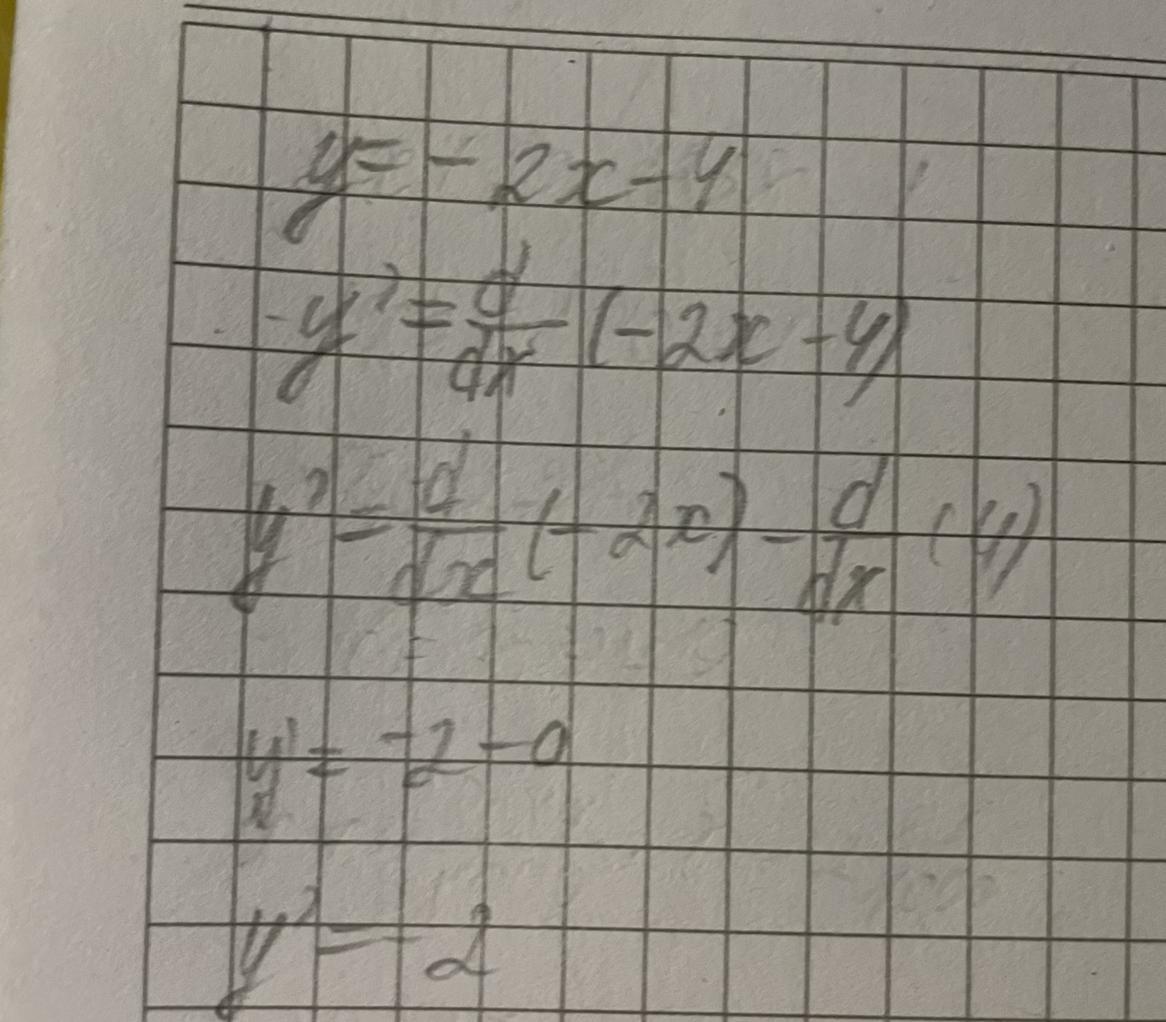 y = - 2x - 4
y' = d/dx (-2x - 4)
y' = d/dx (-2x) - d/dx (4)
y' = -2 - 0
y' = -2